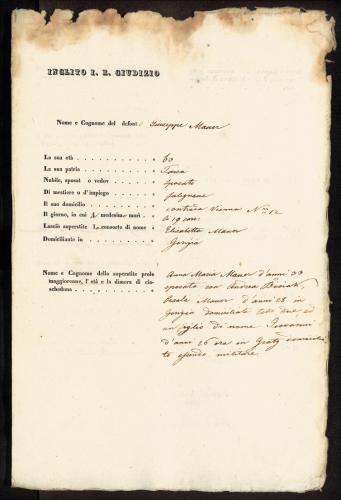 INCLITO I. R. GIUDIZIO
Nome e Cognome del defont Giuseppe Maner
La sua età . . . . . . . . . . . „ 60
La sua patria . . . . . . . . . . „
Nubile, sposat o vedov . . . . . . „ sposato
Di mestiere o d'impiego . . . . . „ falegname
Il suo domicilio . . . . . . . . . „ contrada Vienna N.ro 12
Il giorno, in cui medesim morì . „ li 19 corr.
Lasciò superstite la consorte di nome . „ Elisabetta Maner
Domiciliante in . . . . . . . . . „ Gorizia
Nome e Cognome della superstite prole Anna Maria Maner d'anni 30
maggiorenne, l'età e la dimora di cia- sposata con Andrea
scheduna . . . . . . . . . . . „ Orsola Maner d'anni 28 in
Gorizia domiciliate tutte due, ed
un figlio di nome Giovanni
d'anni 26 ora in Gratz domicilia
to essendo militare.